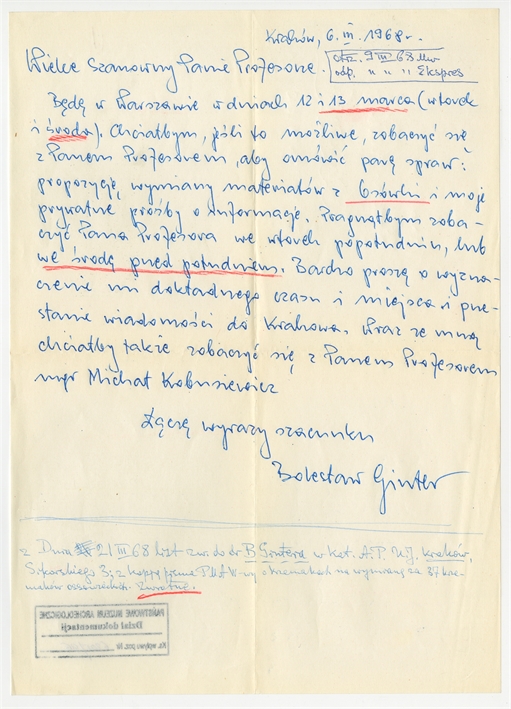 Kraków, 6. III. 1968 r.
otrz. 9 III 68
odp. " " " Ekspres
Wielce Szanowny Panie Profesorze.
Będę w Warszawie w dniach 12 i 13 marca (wtorek
i środa). Chciałbym, jeśli to możliwe, zobaczyć się
z Panem Profesorem, aby omówić parę spraw:
propozycję wymiany materiałów z Osówki i moje
prywatne prośby o informacje. Pragnąłbym zoba-
czyć Pana Profesora we wtorek popołudniu, lub
we środę przed południem. Bardzo proszę o wyzna-
czenie mi dokładnego czasu i miejsca i prze-
słanie wiadomości do Krakowa. Wraz ze mną
chciałby także zobaczyć się z Panem Profesorem
mgr Michał Kobusiewicz
Łączę wyrazy szacunku
Bolesław Ginter
z Dnia 21 III 68 list zw. do dr B. Gintera w Kat. A.P. U.J. Kraków,
Sikorskiego 3; z kopią pisma PMA W-wy o krzemieniach na wymianę za 37 krze-
mieków ossowieckich. Zwrotne.
PAŃSTWOWE MUZEUM ARCHEOLOGICZNE
Dział dokumentacji
Ks. wpływu poz. Nr